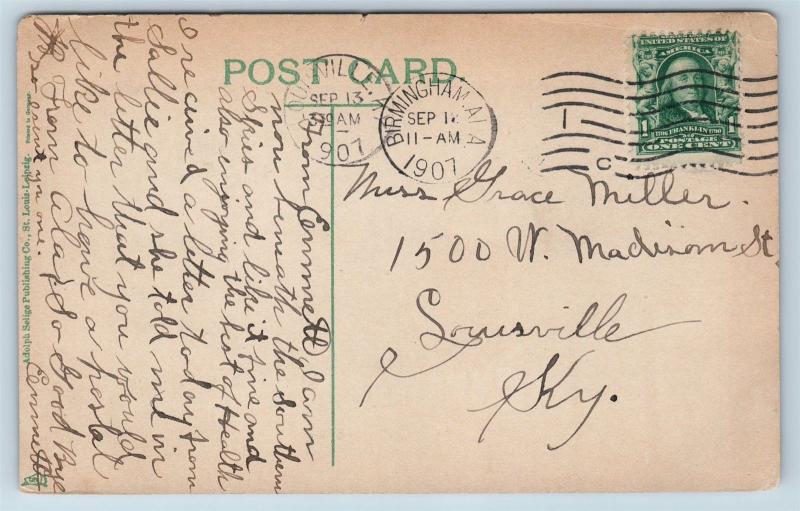 POST CARD.
LOUISVILLE, KY.
SEP 13
330 AM
1907
BIRMINGHAM. ALA
SEP 12
11-AM
1907
1
C
UNITED STATES OF
AMERICA
1706 FRANKLIN 1790
1 POSTAGE 1
ONE CENT
Miss Grace Miller.
1500 W. Madison St,
Louisville
Ky.
From Emmett I am
now beneath the Southern
Skies and like it fine and
also enjoying the best of Health
I recived a letter today from
Sallie and she told me in
the letter that you would
like to have a postal
From Ala, So Good Bye
Emmett
one
Adolph Selige Publishing Co., St. Louis-Leipzig. Printed in Germany